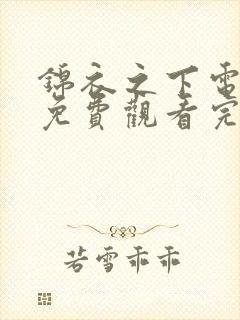 錦衣之下電
免費觀看完
若雪乖乖